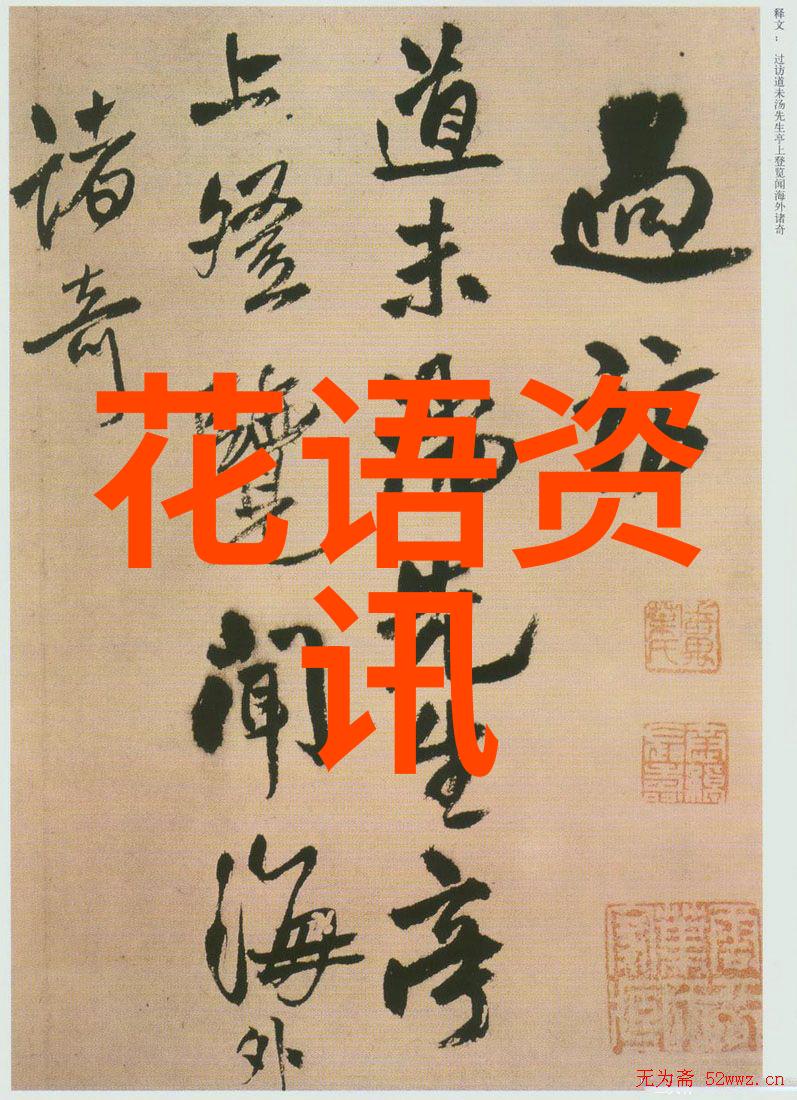 释文： 过访道未汤先生亭上登览闻海外诸奇
過訪
道未湯先生亭
上登覽聞海外
諸奇
花语资
讯
无为斋 52wwz.cn